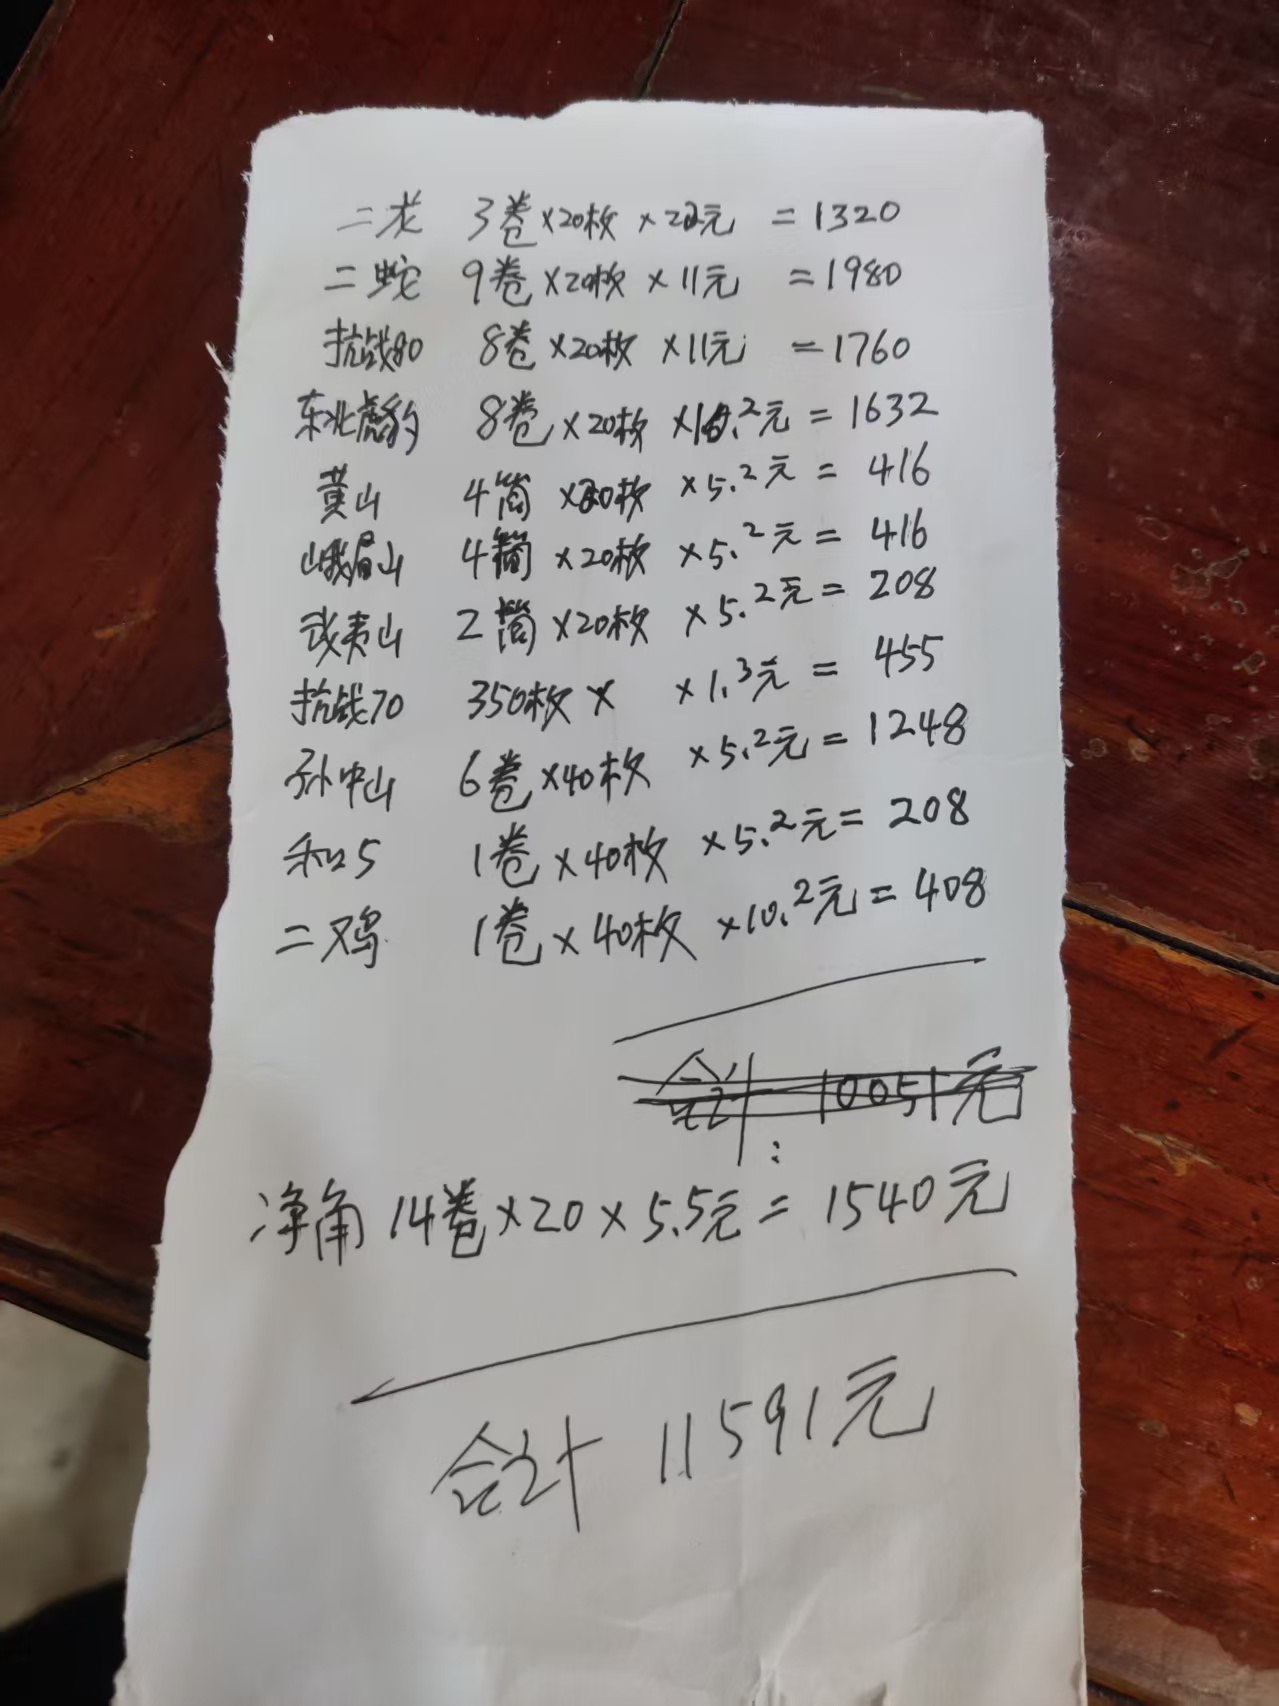 二龙 3卷×20枚×22元 =1320
二蛇 9卷×20枚×11元 =1980
抗战80 8卷×20枚×11元 =1760
东北虎豹 8卷×20枚×10.2元=1632
黄山 4筒×20枚×5.2元=416
峨眉山 4筒×20枚×5.2元=416
武夷山 2筒×20枚×5.2元=208
抗战70 350枚× ×1.3元=455
孙中山 6卷×40枚×5.2元=1248
和5 1卷×40枚×5.2元=208
二鸡 1卷×40枚×10.2元=408
合计: 10051元
净角 14卷×20×5.5元=1540元
合计 11591元